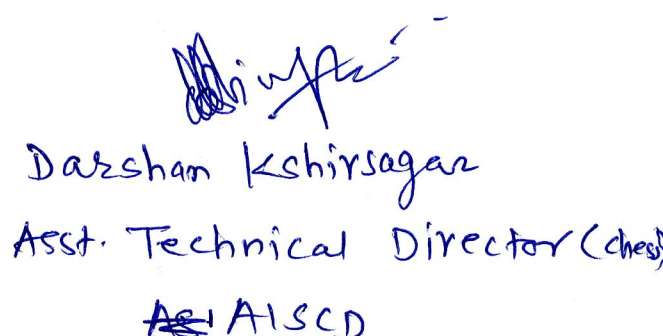 Darshan Kshirsagar
Asst. Technical Director (chess)
AISCD